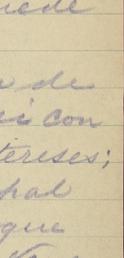 uede
de
i con
tereses;
pal
que